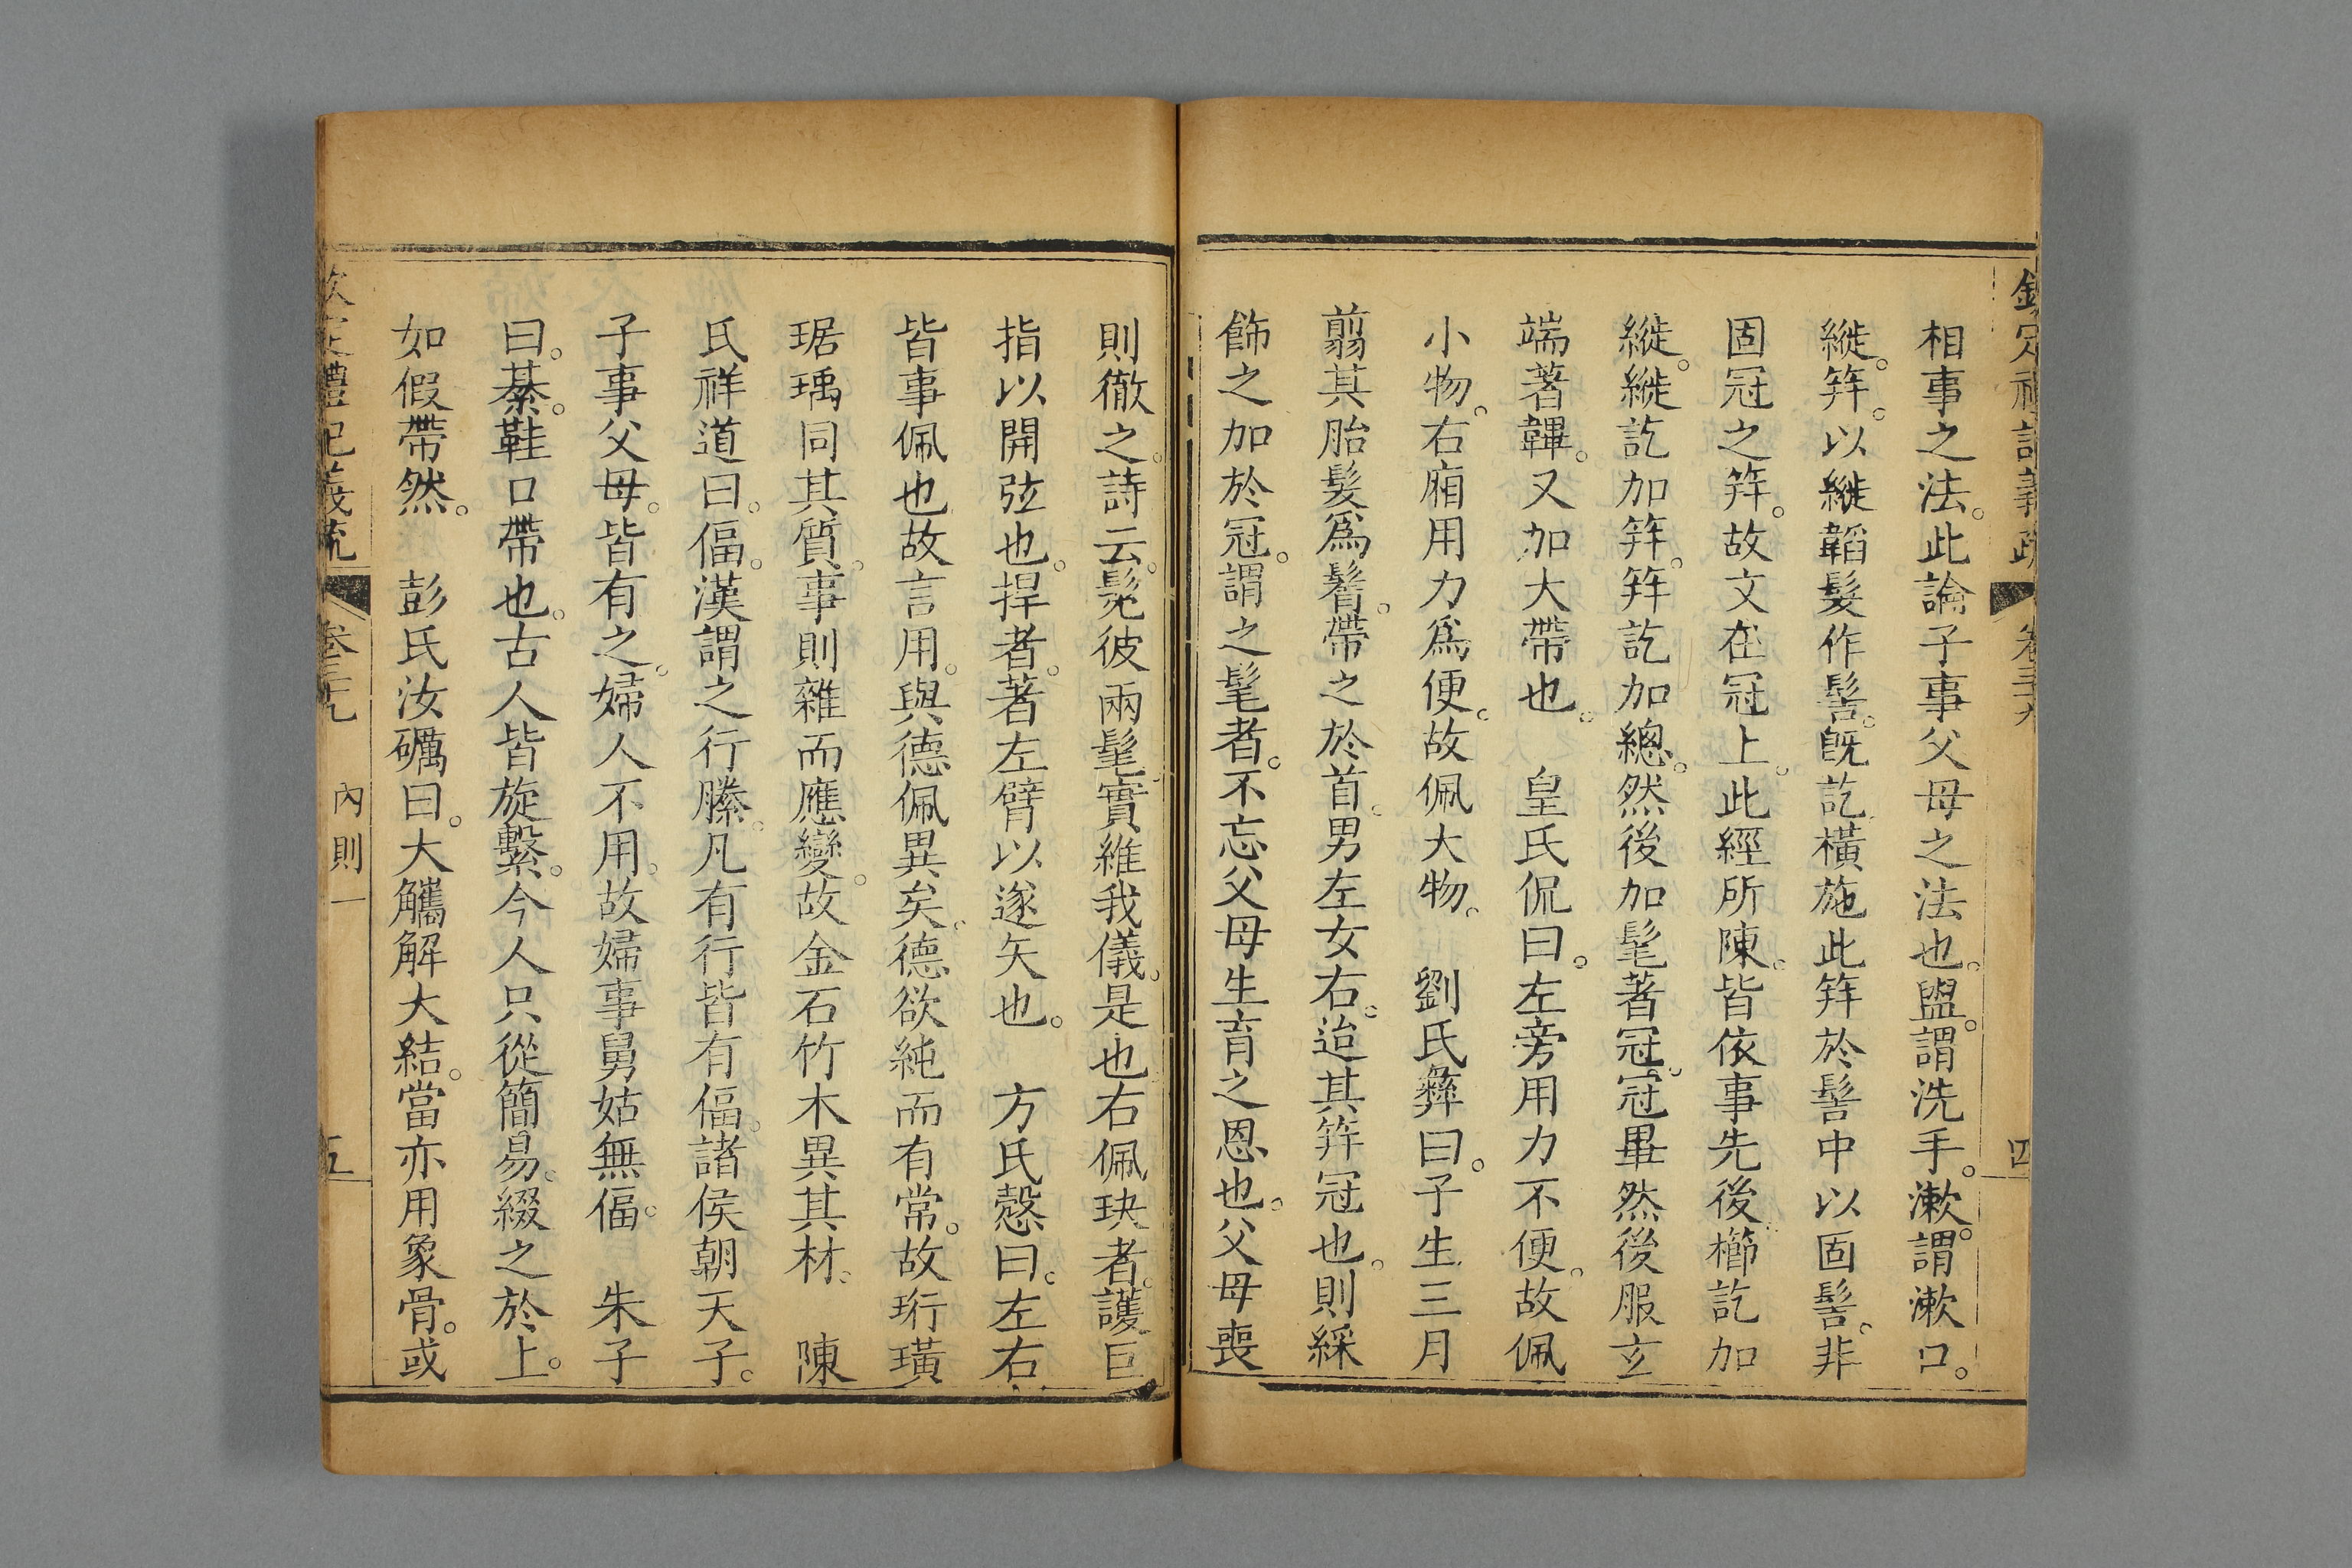 欽定禮記義疏 卷三十九 四
相事之法。此論子事父母之法也。盥。謂洗手。漱。謂漱口。
縰。笄。以縰韜髮作髻。旣訖橫施此笄於髻中以固髻。非
固冠之笄。故文在冠上。此經所陳。皆依事先後櫛訖加
縰。縰訖加笄。笄訖加總。然後加髦著冠。冠畢然後服玄
端著韠。又加大帶也。 皇氏侃曰。左旁用力不便。故佩
小物。右廂用力爲便。故佩大物。 劉氏彝曰。子生三月
翦其胎髮爲鬌。帶之於首。男左女右。迨其笄冠也。則綵
飾之加於冠。謂之髦者。不忘父母生育之恩也。父母喪
則徹之。詩云。髧彼兩髦。實維我儀。是也右佩玦者。護巨
指以開弦也。捍者。著左臂以遂矢也。 方氏慤曰。左右
皆事佩也故言用。與德佩異矣。德欲純而有常。故珩璜
琚瑀同其質。事則雜而應變。故金石竹木異其材。 陳
氏祥道曰。偪。漢謂之行縢。凡有行皆有偪。諸侯朝天子。
子事父母。皆有之。婦人不用。故婦事舅姑無偪。 朱子
曰。綦。鞋口帶也。古人皆旋繫。今人只從簡易。綴之於上。
如假帶然。 彭氏汝礪曰。大觿解大結。當亦用象骨。或
欽定禮記義疏 卷三十九 內則一 五